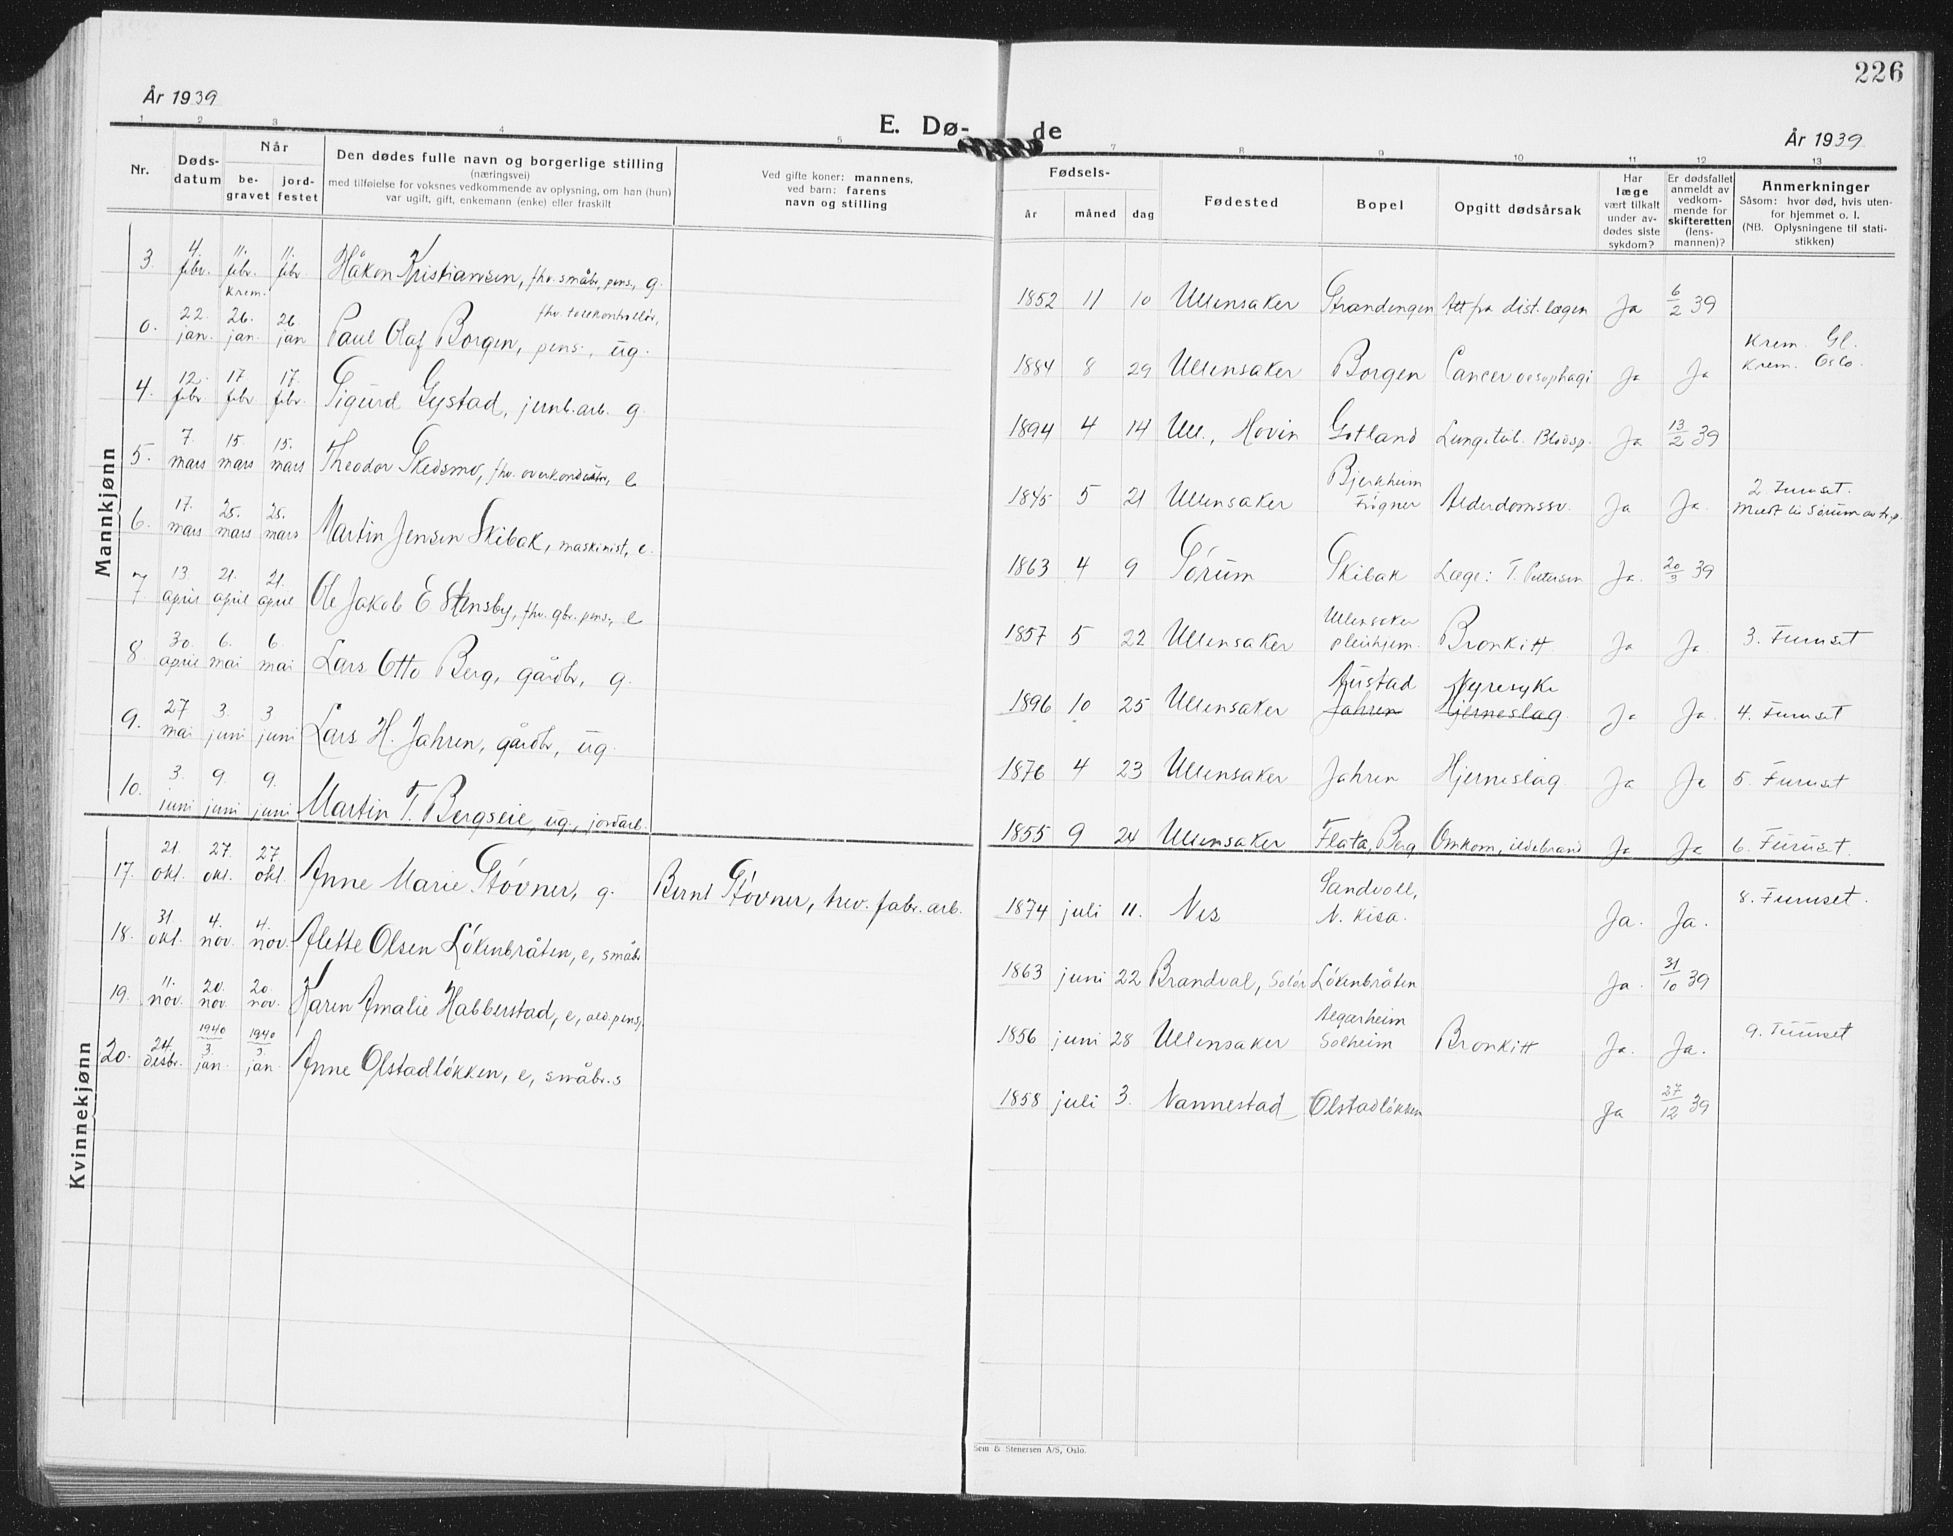 226
År 1939
E. Dø- de
År 1939
1 2 3 4 5 7 8 9 10 11 12 13
Nr.
Døds-
datum
Når
be-
gravet
jord-
festet
Den dødes fulle navn og borgerlige stilling
(næringsvei)
med tilføielse for voksnes vedkommende av oplysning, om han (hun)
var ugift, gift, enkemann (enke) eller fraskilt
Ved gifte koner: mannens,
ved barn: farens
navn og stilling
Fødsels-
år måned dag
Fødested
Bopel
Opgitt dødsårsak
Har
læge
vært tilkalt
under av-
dødes siste
sykdom?
Er dødsfallet
anmeldt av
vedkom-
mende for
skifteretten
(lens-
mannen)?
Anmerkninger
Såsom: hvor død, hvis uten-
for hjemmet o. l.
(NB. Oplysningene til stati-
stikken)
Mannkjønn
3 4. febr. 11. febr. 11. febr Håkon Kristiansen, fhv. småbr., pens., g. 1852 11 10 Ullensaker Strandengen Att fra dist. lægen Ja 6/2 39
0. 22. jan. Krem. 26. jan. 26. jan Paul Olaf Borgen, fhv. tollkontrollør, pens., ug. 1884 8 29 Ullensaker Borgen Cancer oesophagi Ja Ja Krem. Gl. Krem. Oslo.
4. 12. febr 17 febr 17. febr. Sigurd Gystad, jernb.arb. g. 1894 4 14 Ull., Hovin Gotland Lungetub. Blodsp. Ja 13/2 39
5. 7. mars 15 mars 15. mars Theodor Skedsmo, fhv. overkonduktør, e 1845 5 21 Ullensaker Bjerkheim Frogner Alderdomssv. Ja Ja. 2 Furuset.
6. 17. mars 25. mars 25. mars Martin Jensen Skibak, maskinist, e. 1863 4 9 Sørum Skibak Læge: T. Pettersen Ja. 20/3 39
7 13. april 21. april 21. april Ole Jakob E Stensby, fhv. gbr. pens., e 1857 5 22 Ullensaker Ullensaker pleiehjem. Bronkitt Ja Ja. 3. Furuset
8. 30. april 6. mai 6. mai Lars Otto Berg, gårdbr, g. 1896 10 25 Ullensaker Austad Jahren Nyresyke Hjerneslag Ja Ja. 4. Furuset
9. 27 mai 3. juni 3 juni Lars H. Jahren, gårdbr, ug. 1876 4 23 Ullensaker Jahren Hjerneslag Ja Ja 5. Furuset
10. 3. juni 9. juni 9. juni Martin T. Bergseie, ug., jordarb. 1855 9 24 Ullensaker Flata, Berg Omkom, ildebrand Ja Ja 6. Furuset.
Kvinnekjønn
17. 21. okt. 27. okt. 27 okt. Anne Marie Støvner, g. Bernt Støvner, trev. fabr. arb. 1874 juli 11. Nes Sandvoll, N. Kisa. Ja. Ja. 8. Furuset.
18. 31 okt. 4. nov. 4. nov. Alette Olsen Løkenbråten, e, småbr 1863 juni 22 Brandval, Solør Løkenbråten Ja. 31/10 39
19. 11. nov. 20. nov. 20. nov. Karen Amalie Habberstad, e, ald.pensj. 1856 juni 28 Ullensaker Algarheim Solheim Bronkitt Ja. Ja. 9. Furuset
20. 24. desbr. 1940 3 jan. 1940 3. jan. Anne Olstadløkken, e, småbr.s 1858 juli 3. Nannestad Olstadløkken Ja 27/12 39
Sem & Stenersen A/S, Oslo.